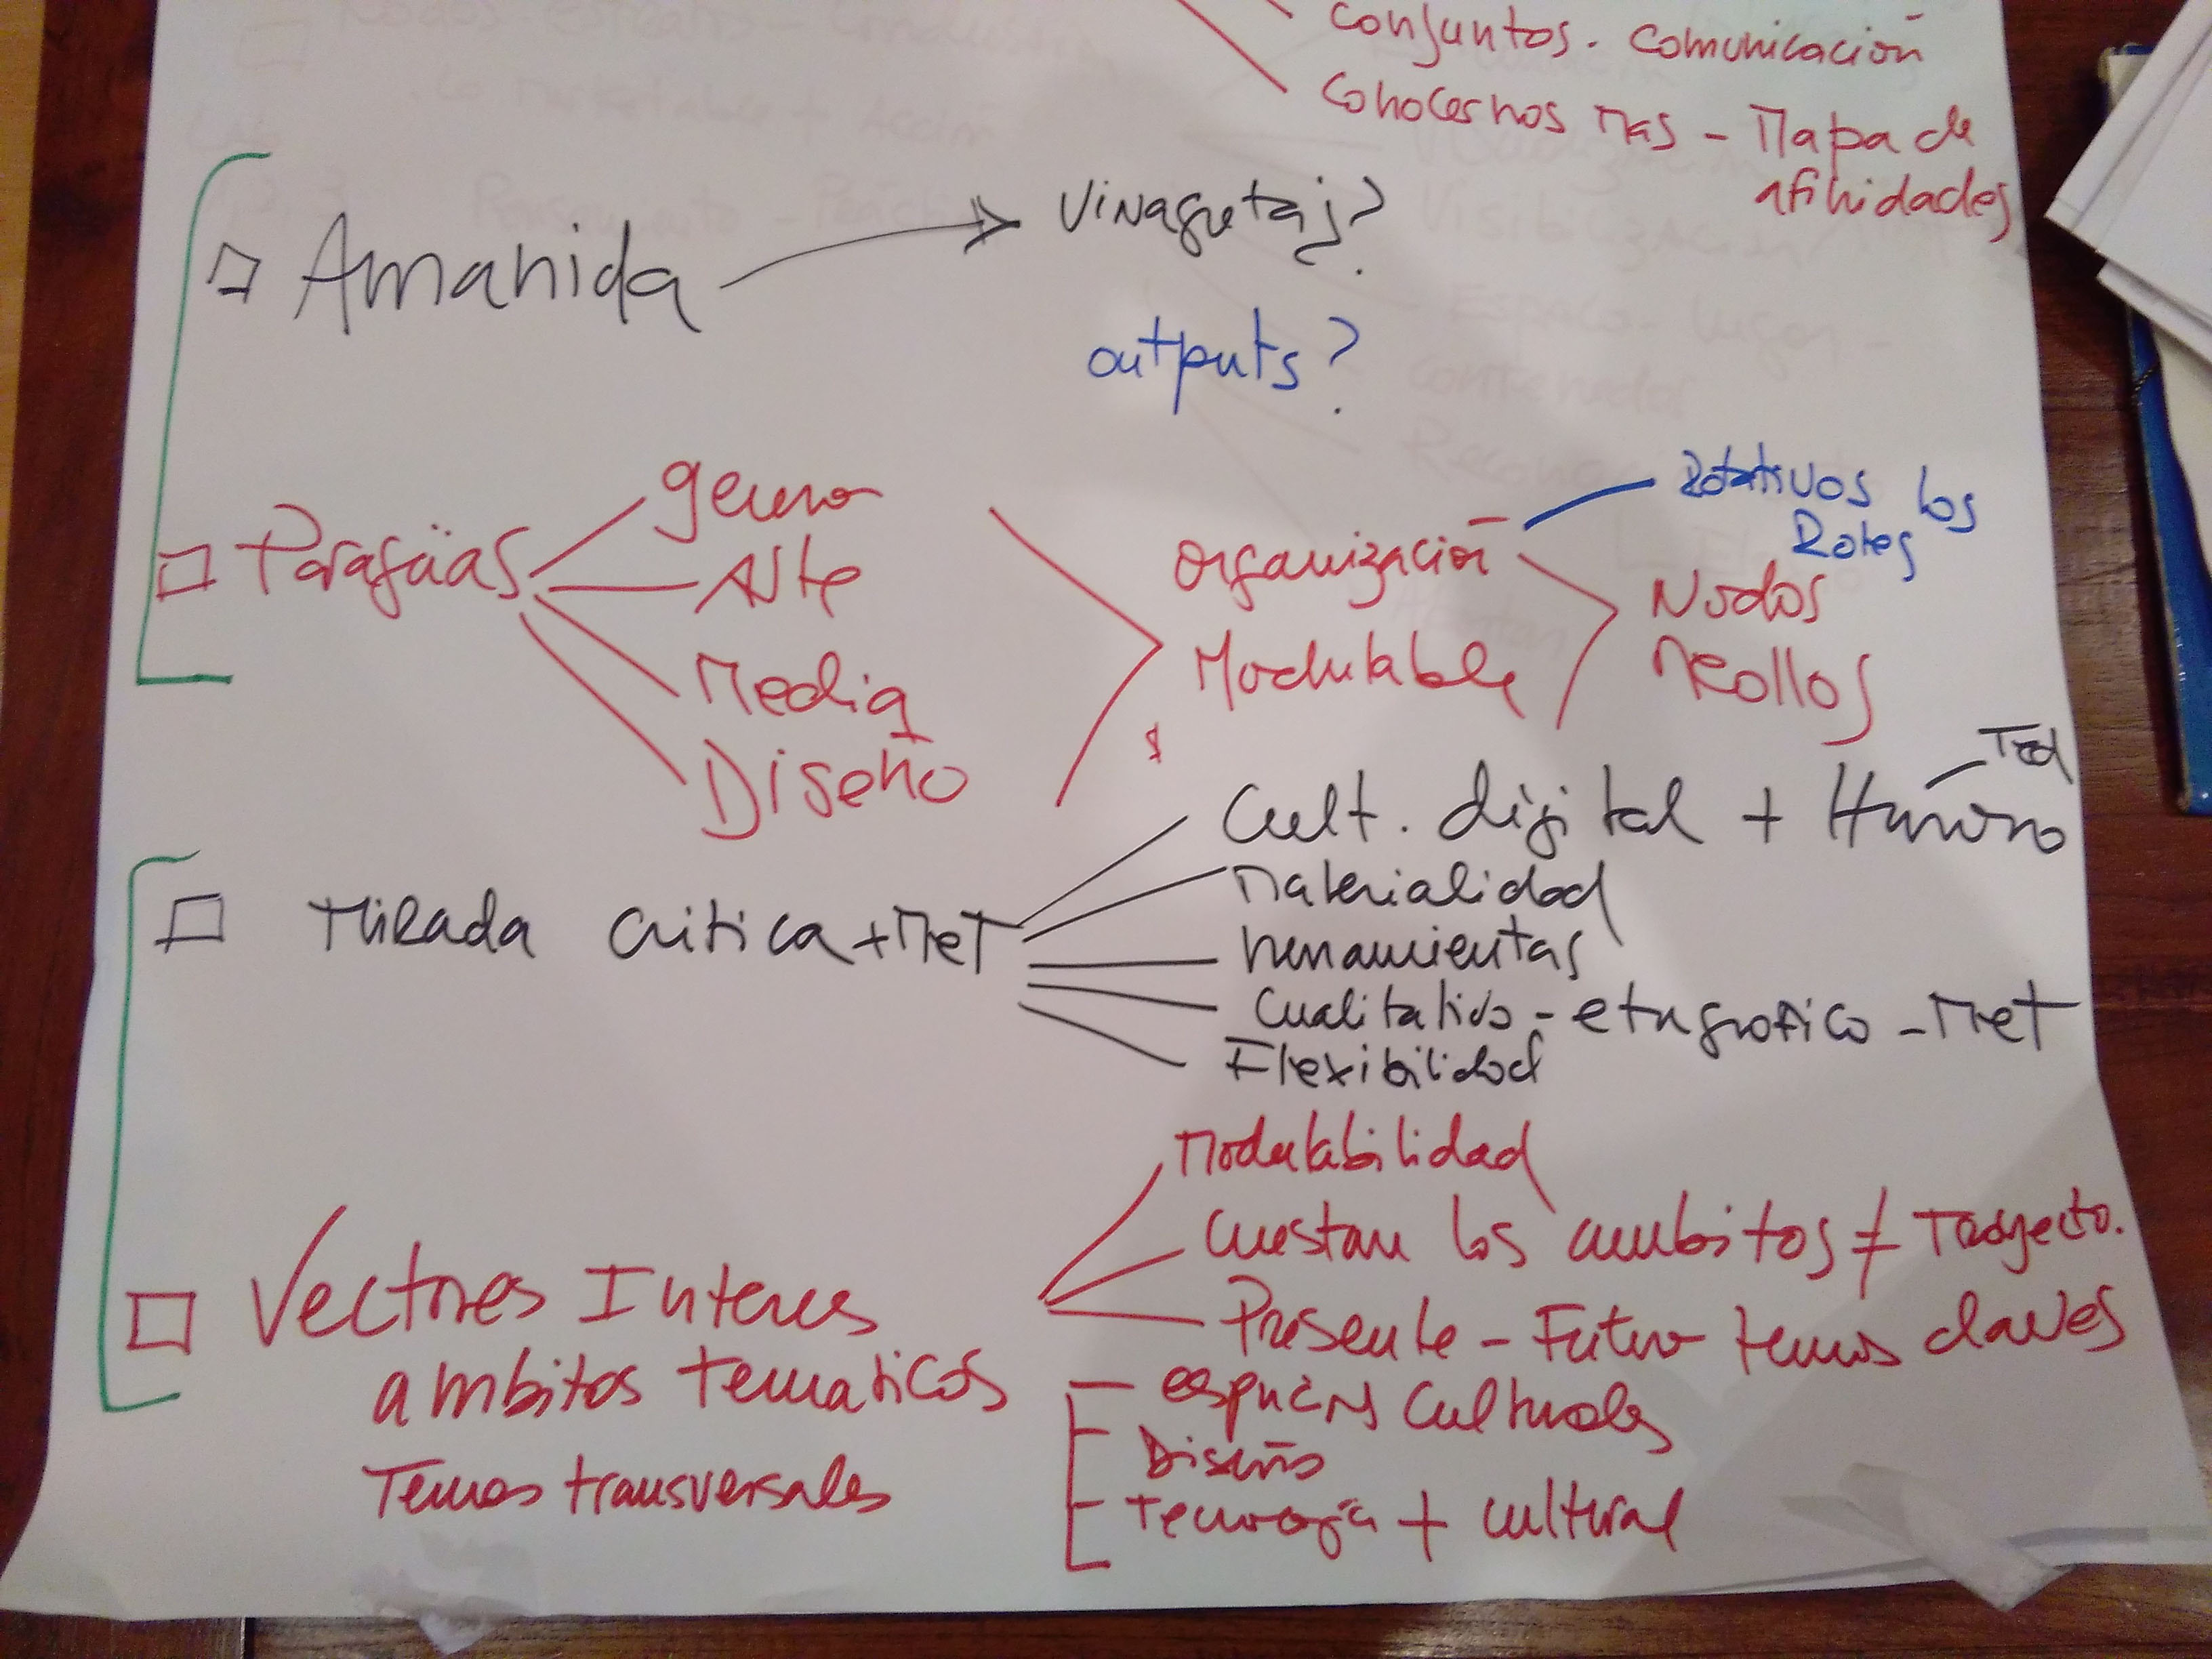 conjuntos. comunicación
conocernos mas - Mapa de
afinidades
Amanida
Vinagretas?
outputs?
Paragüas
genero
Arte
Media
Diseño
organización
Modulable
Rotativos los
Roles
Nodos
Rollos
Cult. digital + Humano
Materialidad
herramientas
Cualitativo - etngrafico - Met
Flexibilidad
Mirada critica + Met
Modulabilidad
Cuestan los ambitos ≠ Trayecto.
Presente - Futuro temas claves
Vectores Interes
ambitos tematicos
Temas transversales
espacios culturales
Diseño
Tecnología + cultural